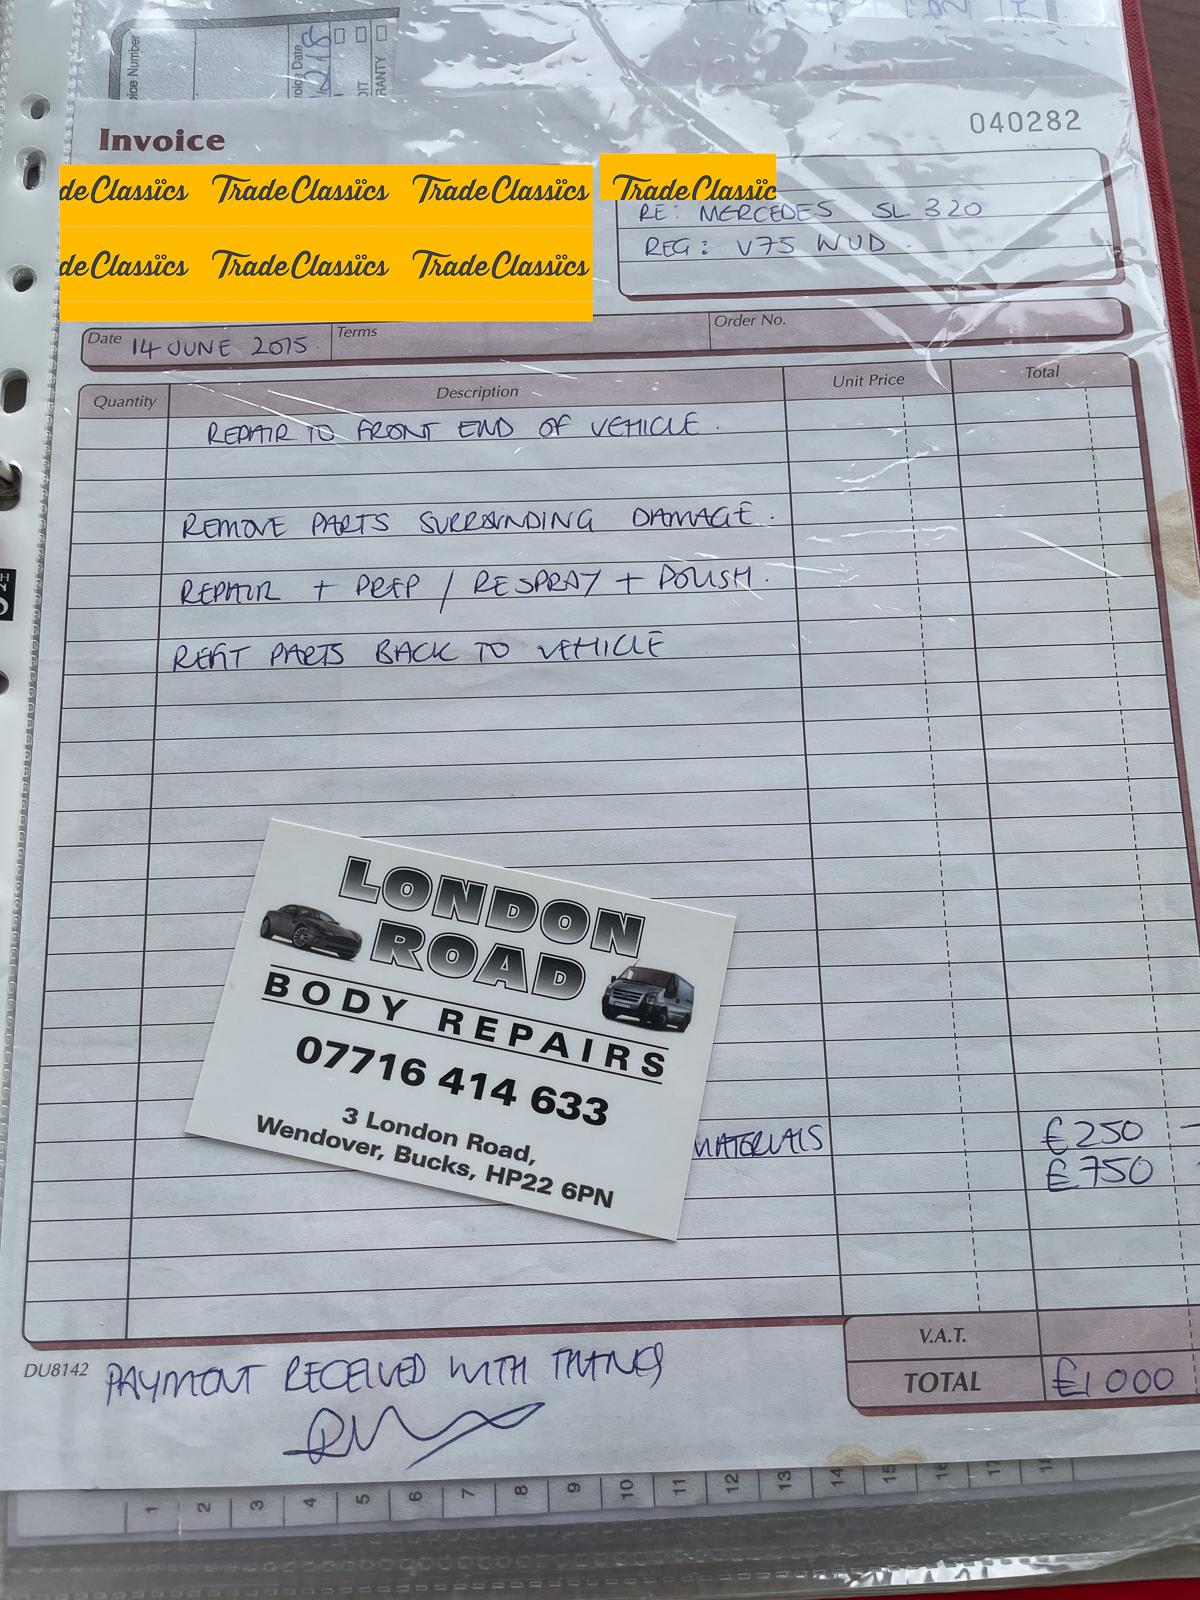 oice Number
voice Date
RANTY
Invoice
040282
deClassics TradeClassics TradeClassics
TradeClassic
RE: MERCEDES SL 320
REG: V75 WUD.
deClassics TradeClassics TradeClassics
Date 14 JUNE 2015
Terms
Order No.
Quantity Description Unit Price Total
REPAIR TO FRONT END OF VEHICLE.
REMOVE PARTS SURROUNDING DAMAGE.
REPAIR + PREP / RESPRAY + POLISH.
REFIT PARTS BACK TO VEHICLE
LONDON
ROAD
BODY REPAIRS
07716 414 633
3 London Road,
Wendover, Bucks, HP22 6PN
MATERIALS £250
£750
V.A.T.
DU8142 PAYMENT RECEIVED WITH THANKS
TOTAL £1000
1 2 3 4 5 6 7 8 9 10 11 12 13 14 15 16 17 18